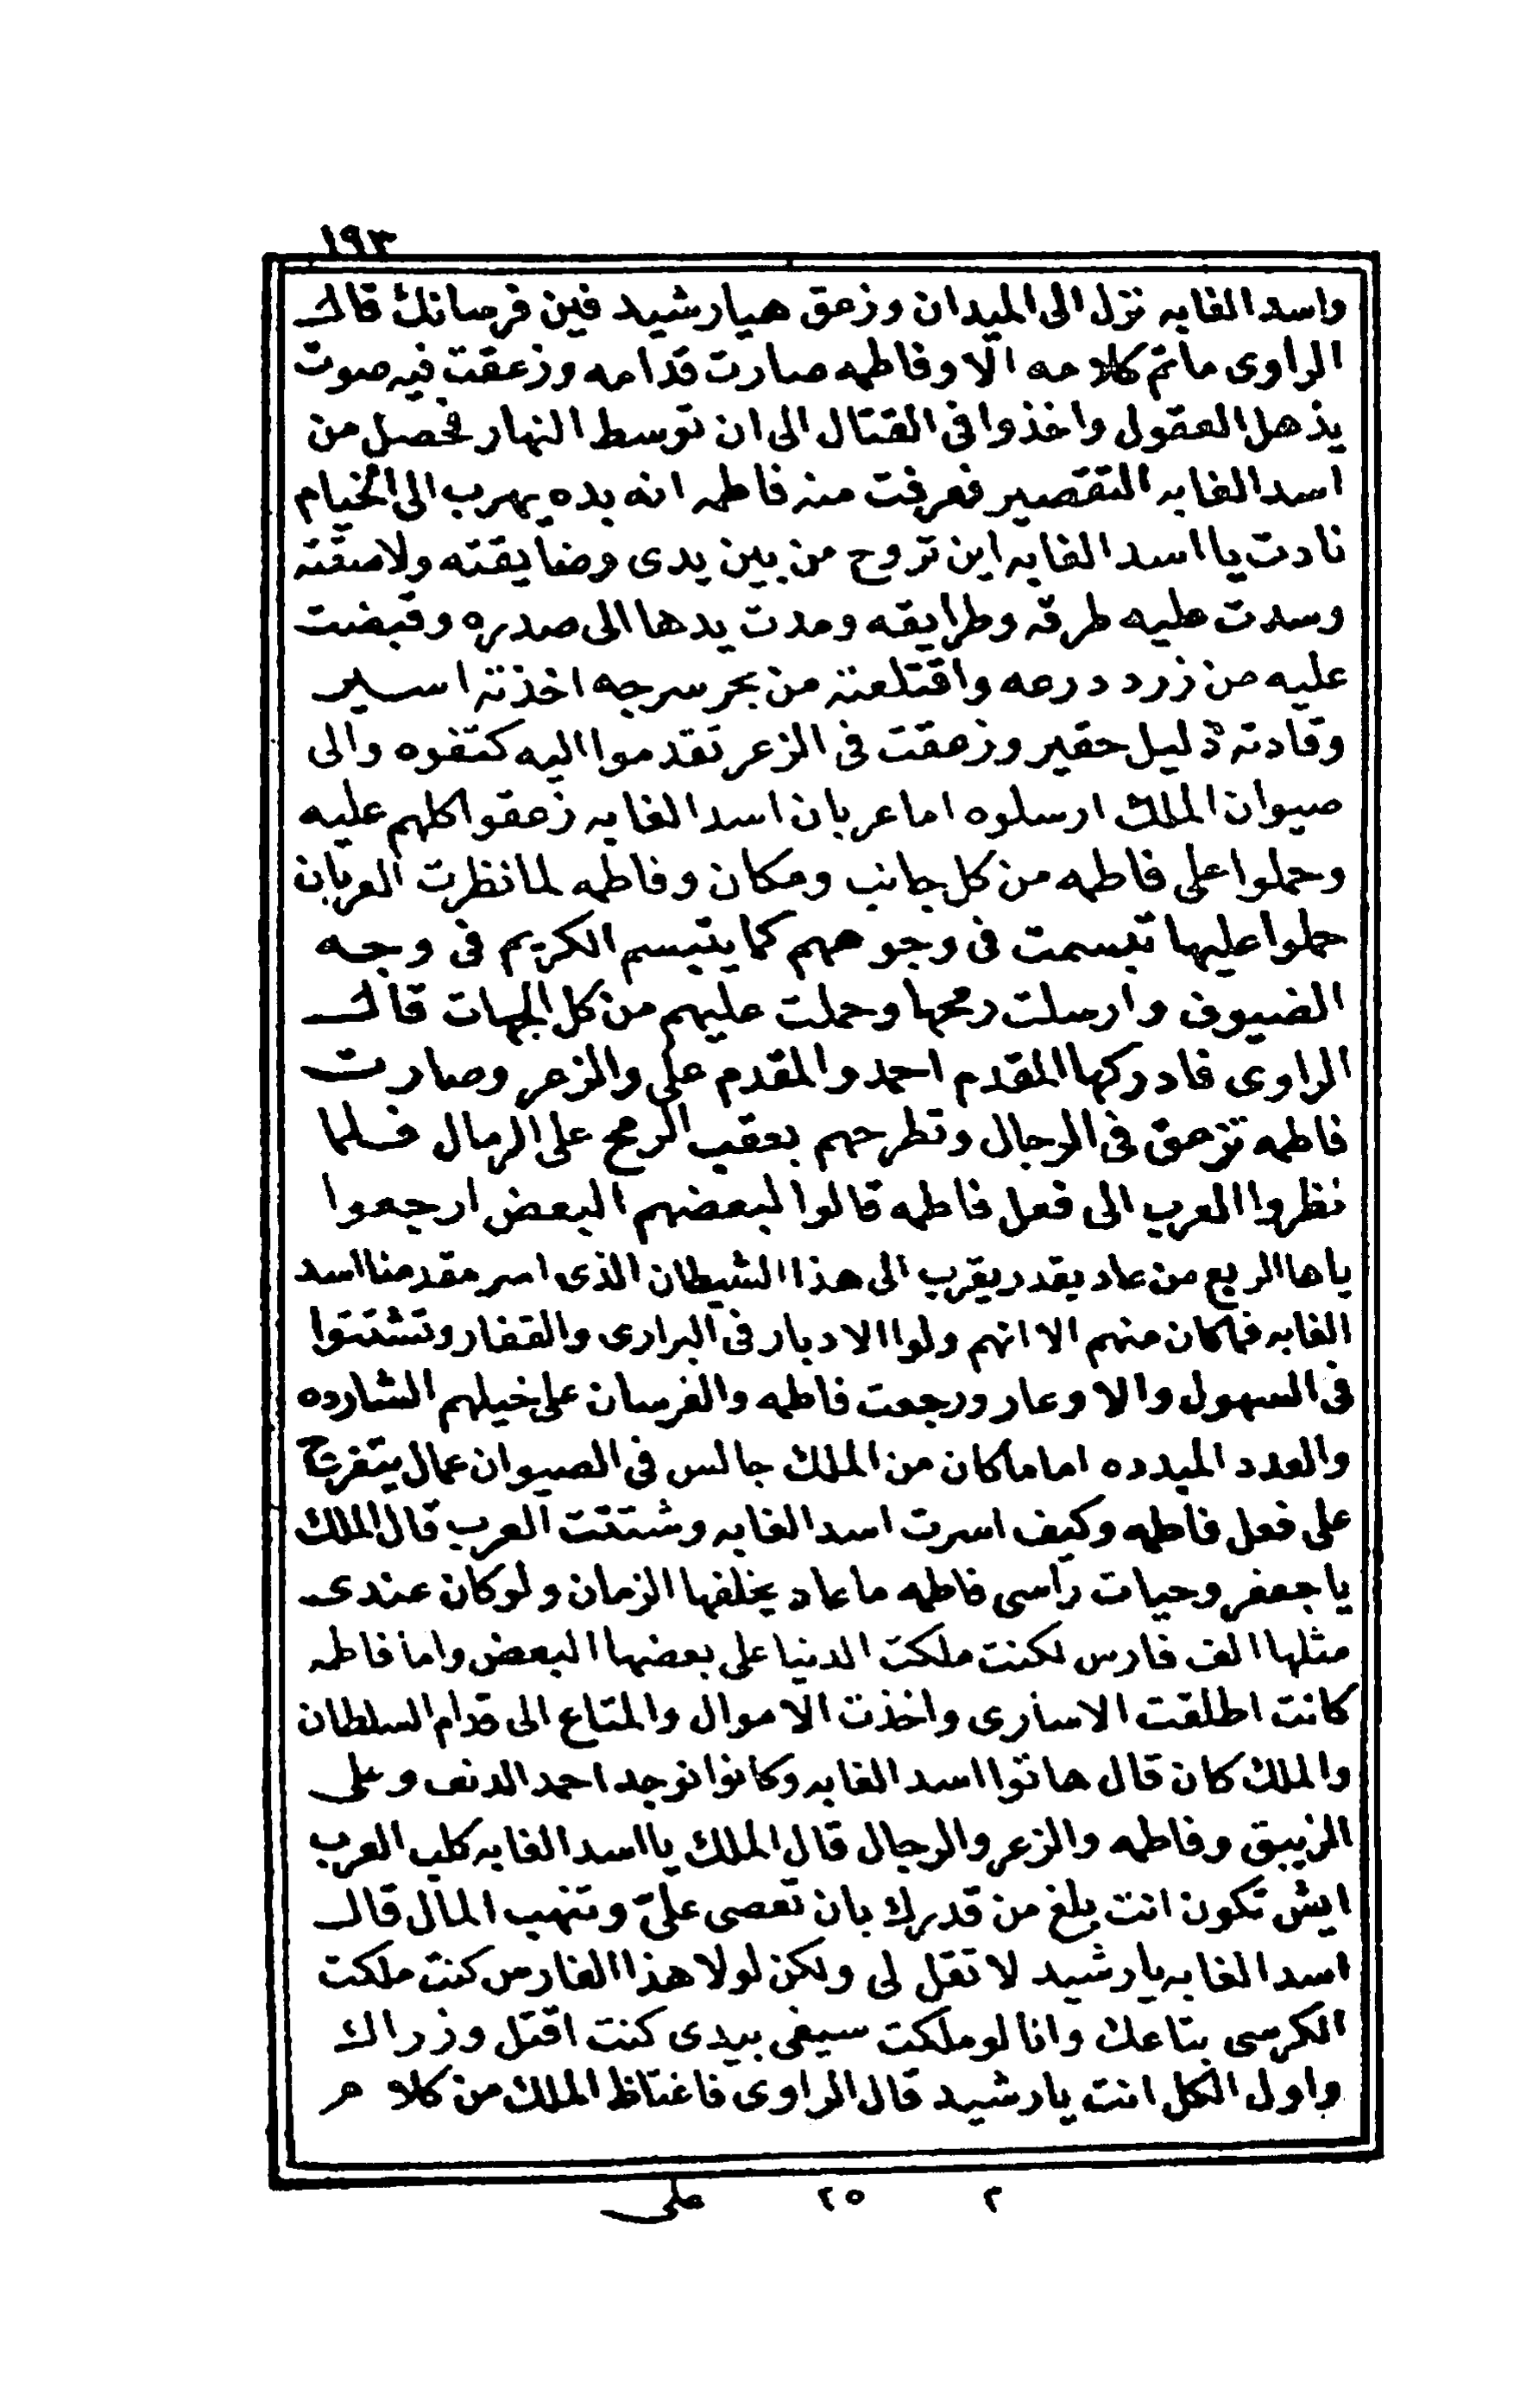 ١٩٣
واسد الغابه نزل الى الميدان وزعق هيا رشيد فين فرسانك قال
الراوى ماتم كلامه الا وفاطمه صارت قدامه وزعقت فيه صوت
يذهل العقول واخذوا فى القتال الى ان توسط النهار فحصل من
اسد الغابه التقصير فعرفت منه فاطمه انه بده يهرب الى الخيام
نادت يا اسد الغابه اين تروح من بين يدى وضايقته ولاصقته
وسدت عليه طرقه وطرايقه ومدت يدها الى صدره وقبضت
عليه من زرد درعه واقتلعته من بحر سرجه اخذته اسير
وقادته ذليل حقير وزعقت فى الزعر تقدموا اليه كتفوه والى
صيوان الملك ارسلوه اما عربان اسد الغابه زعقوا كلهم عليه
وحملوا على فاطمه من كل جانب ومكان وفاطمه لما نظرت العربان
حملوا عليها تبسمت فى وجوههم كما يتبسم الكريم فى وجه
الضيوف وارسلت رمحها وحملت عليهم من كل الجهات قال
الراوى فادركها المقدم احمد والمقدم على والزعر وصارت
فاطمه تزعق فى الرجال وتطرحهم بعقب الرمح على الرمال فلما
نظروا العرب الى فعل فاطمه قالوا لبعضهم البعض ارجعوا
ياها الربع من عاد يقدر يقرب الى هذا الشيطان الذى اسر مقدمنا اسد
الغابه فما كان منهم الا انهم ولوا الادبار فى البرارى والقفار وتشتتوا
فى السهول والاوعار ورجعت فاطمه والفرسان على خيلهم الشارده
والعدد المبدده اما ما كان من الملك جالس فى الصيوان عمال يتفرج
على فعل فاطمه وكيف اسرت اسد الغابه وشتتت العرب قال الملك
يا جعفر وحيات رأسى فاطمه ما عاد يخلفها الزمان ولو كان عندى
مثلها الف فارس لكنت ملكت الدنيا على بعضها البعض واما فاطمه
كانت اطلقت الاسارى واخذت الاموال والمتاع الى قدام السلطان
والملك كان قال هاتوا اسد الغابه وكانوا نوجد احمد الدنف وعلى
الزيبق وفاطمه والزعر والرجال قال الملك يا اسد الغابه كلب العرب
ايش تكون انت بلغ من قدرك بان تعصى علىّ وتنهب المال قال
اسد الغابه يا رشيد لا تقل لى ولكن لولا هذا الفارس كنت ملكت
الكرسى بتاعك وانا لو ملكت سيفى بيدى كنت اقتل وزراك
واول الكل انت يا رشيد قال الراوى فاغتاظ الملك من كلامه
٢ ٢٥ على